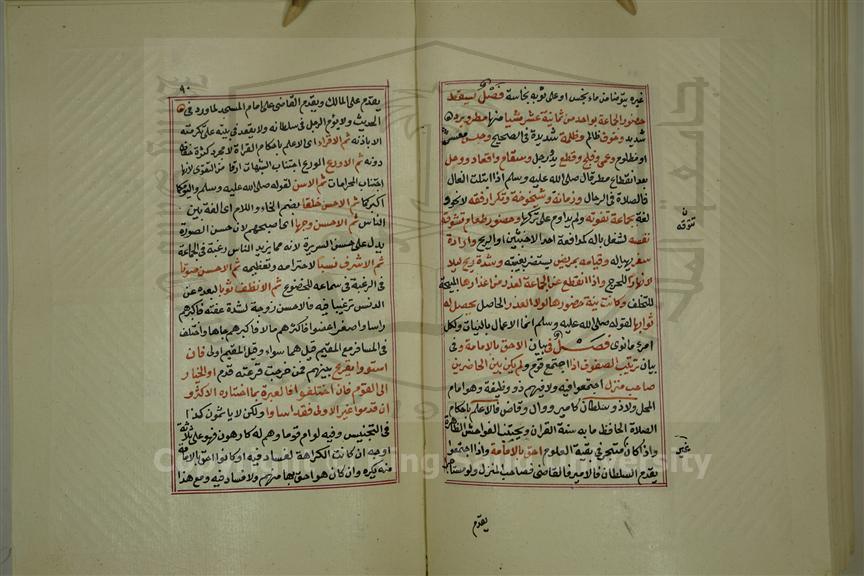 غيره يتوضأ من ماء نجس او على ثوبه نجاسة فصل يسقط
حضور الجماعة بواحد من ثمانية عشر شيا منها مطر وبرد
شديد وخوف ظالم وظلمة شديدة في الصحيح وحبس معسر
او مظلوم وعمى وفلج وقطع يد ورجل وسقام واقعاد ووحل
بعد انقطاع مطر قال صلى الله عليه وسلم اذا ابتلت النعال
فالصلاة في الرحال وزمانة وشيخوخة وتكرار فقه لا نحو و
لغة بجماعة تفوته ولم يداوم على تركها وحضور طعام تتوقه
نفسه لشغل باله كمدافعة احد الاخبثين او الريح وارادة
سفر تهيأ له وقيامه بمريض يستضر بغيبته وشدة ريح ليلا
لا نهارا للحرج واذا انقطع عن الجماعة لعذر من اعذارها المبيحة
للتخلف وكانت نيته حضورها لولا العذر الحاصل يحصل له
ثوابها لقوله صلى الله عليه وسلم انما الاعمال بالنيات ولكل
امرئ ما نوى فصل في بيان الاحق بالامامة وفي
بيان ترتيب الصفوف اذا اجتمع قوم ولم يكن بين الحاضرين
صاحب منزل اجتمعوا فيه ولا فيهم ذو وظيفة وهو امام
المحل ولا ذو سلطان كامير ووال وقاض فالاعلم باحكام
الصلاة الحافظ ما به سنة القران ويجتنب الفواحش الظاهرة
وان كان متبحر في بقية العلوم احق بالامامة واذا اجتمعوا
يقدم السلطان فالامير فالقاضي فصاحب المنزل ولو مستاجرا
ن
تتوقه
غير
يقدم
٩٠
يقدم على المالك ويقدم القاضي على امام المسجد لما ورد في
الحديث ولا يؤم الرجل في سلطانه ولا يقعد في بيته على تكرمته
الا باذنه ثم الاقراء اى الاعلم باحكام القراة لا مجرد كثرة حفظ
دونه ثم الاورع الورع اجتناب الشبهات ارقا من التقوى لانها
اجتناب المحرمات ثم الاسن لقوله صلى الله عليه وسلم وليؤمكما
اكبركما ثم الاحسن خلقا بضم الخاء واللام اى الفة بين
الناس ثم الاحسن وجها اى اصبحهم لان حسن الصورة
يدل على حسن السريرة لانه مما يزيد الناس رغبة في الجماعة
ثم الاشرف نسبا لاحترامه وتعظيمه ثم الاحسن صوتا
للرغبة في سماعه للخضوع ثم الانظف ثوبا لبعده عن
الدنس ترغيبا فيه فالاحسن زوجة لشدة عفته فاكبرهم
راسا واصغر اعضوا فاكثرهم مالا فاكبرهم جاها واختلف
في المسافر مع المقيم قيل هما سواء وقيل المقيم اولى فان
استووا يقرع بينهم فمن خرجت قرعته قدم او الخيار
الى القوم فان اختلفوا فالعبرة بما اختاره الاكثر و
ان قدموا غير الاولى فقد اساوا ولكن لا ياثمون كذا
في التجنيس وفيه لو ام قوما وهم له كارهون فهو على ثلاثة
اوجه ان كانت الكراهة لفساد فيه او كانوا احق بالامامة
منه يكره وان كان هو احق بها منهم ولا فساد فيه ومع هذا